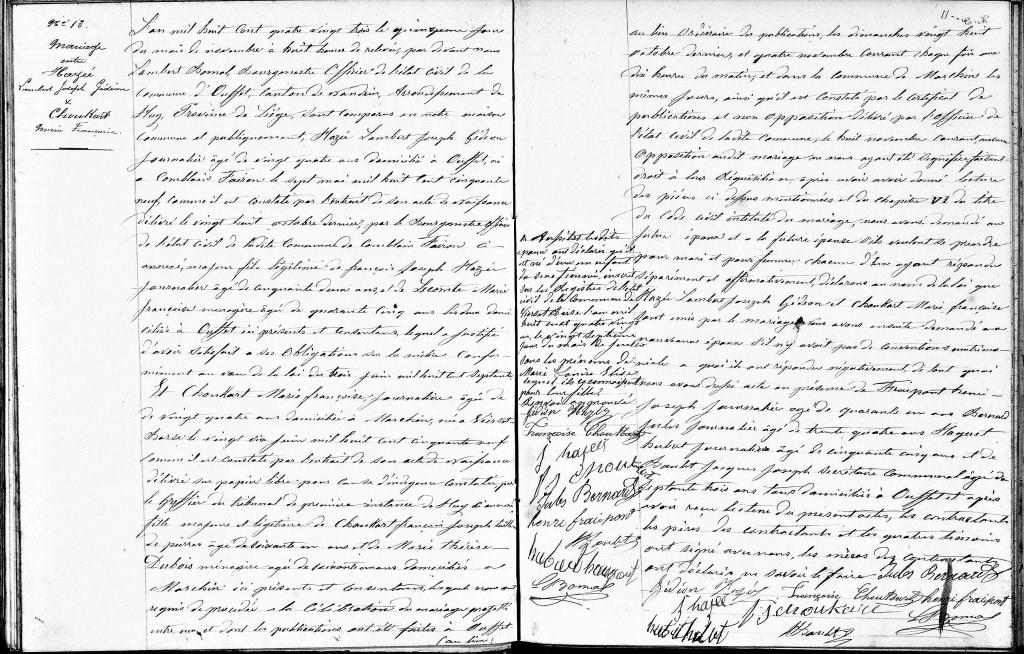 N° 13.
Mariage
entre
Hazée
Lambert Joseph Gédéon
&
Choukart
Marie Françoise.
L'an mil huit cent quatre vingt trois le quinzième jour
du mois de novembre à huit heures de relevée, par devant nous
Lambert Bomal Bourgmestre Officier de l'état civil de la
commune d'Ouffet, canton de Nandrin, Arrondissement de
Huy, Province de Liège, sont comparus en notre maison
commune et publiquement, Hazée Lambert Joseph Gédéon
journalier âgé de vingt quatre ans domicilié à Ouffet, né
à Comblain Fairon le sept mai mil huit cent cinquante
neuf, comme il est constaté par l'extrait de son acte de naissance
délivré le vingt huit octobre dernier, par le Bourgmestre officier
de l'état civil de ladite Commune de Comblain Fairon ci-
annexé, majeur fils légitime de françois Joseph Hazée
journalier âgé de cinquante deux ans et de Lecomte Marie
françoise ménagère âgée de quarante cinq ans les deux domi-
ciliés à Ouffet ici présents et consentans, lequel a justifié
d'avoir satisfait à ses obligations sur la milice confor-
mément au vœu de la loi du trois juin mil huit cent septante
Et Choukart Marie françoise, journalière âgée de
de vingt quatre ans domiciliée à Marchin, née à Vierset
Barse le vingt dix juin mil huit cent cinquante neuf
comme il est constaté par l'extrait de son acte de naissance
délivré sur papier libre pour cause d'indigence constatée par
le Greffier du tribunal de première instance de Huy ci annexé
fille majeure et légitime de Choukart françois Joseph tailleur
de pierres âgé de soixante en ans et de Marie thérèse
Dubois ménagère âgée de soixante ans domiciliés à
Marchin ici présents et consentans, lesquels nous ont
requis de procéder à la Célébration du mariage projetté
entre eux et dont les publications ont été faites à Ouffet
(au lieu)
11
au lieu Ordinaire des publications, les dimanches vingt huit
octobre dernier, et quatre novembre courant chaque fois vers
dix heures du matin, et dans la commune de Marchin les
mêmes jours, ainsi qu'il est constaté par le certificat de
publications et non opposition délivré par l'officier de
l'état civil de ladite commune, le huit novembre courant, aucune
opposition audit mariage ne nous ayant été signifiée faisant
droit à leur réquisition, après avoir donné lecture
des pièces ci dessus mentionnées et du chapitre VI du titre
du Code civil intitulé du mariage, nous avons demandé au
futur époux et à la future épouse s'ils veulent se prendre
pour mari et pour femme, chacun d'eux ayant répondu
séparément et affirmativement, déclarons au nom de la loi que
Hazée Lambert Joseph Gédéon et Choukart Marie françoise
sont unis par le mariage. Nous avons ensuite demandé aux
nouveaux époux s'il n'y avait pas de conventions matrimo-
niales à quoi ils ont répondu négativement, de tout quoi
nous avons dressé acte en présence de Fraipont henri
Joseph journalier âgé de quarante en ans Bernard
Jules journalier âgé de trente quatre ans Haquet
hubert journalier âgé de cinquante cinq ans et de
Baulet Jacques Joseph secrétaire communal âgé de
septante trois ans tous domiciliés à Ouffet et après
avoir reçu lecture du présent acte, les contractants
les pères des contractants et les quatre témoins
ont signé avec nous, les mères des contractants
ont déclaré ne savoir le faire
Aussitôt lesdits
époux ont déclaré qu'il
est né d'eux un enfant
du sexe féminin, inscrit
sur les Registres de l'état
civil de la Commune de
Vierset Barse l'an mil
huit cent quatre vingt
un, le vingt septième
jour du mois de juillet
sous les prénoms de
Marie Louise Elise
lequel ils reconnaissent
pour leur fille.
Renvoi approuvé
Gédéon Hazée
Françoise Choukart
J hazée
Jules Bernard
henri fraipont
JJ Baulet
L Bomal
Jules Bernard
Gédéon Hazée
Françoise Choukart
henri fraipont
J hazée
JJ choukart
L Bomal
JJ Baulet